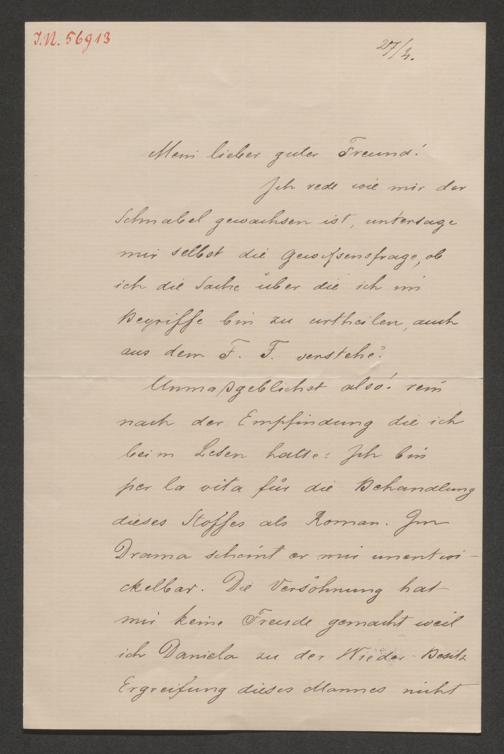 I.N. 56913
27/3.
Mein lieber guter Freund!
Ich rede wie mir der
Schnabel gewachsen ist, untersage
mir selbst die Gewissensfrage, ob
ich die Sache über die ich im
Begriffe bin zu urtheilen, auch
aus dem F. F. verstehe.
Unmaßgeblichst also! rein
nach der Empfindung die ich
beim Lesen hatte: Ich bin
per la vita für die Behandlung
dieses Stoffes als Roman. Im
Drama scheint er mir unentwi-
ckelbar. Die Versöhnung hat
mir keine Freude gemacht weil
ich Daniela zu der Wieder-Besitz
Ergreifung dieses Mannes nicht